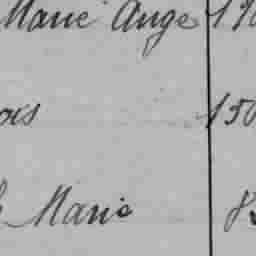 Marie Ange 19
as 150
Marie 8